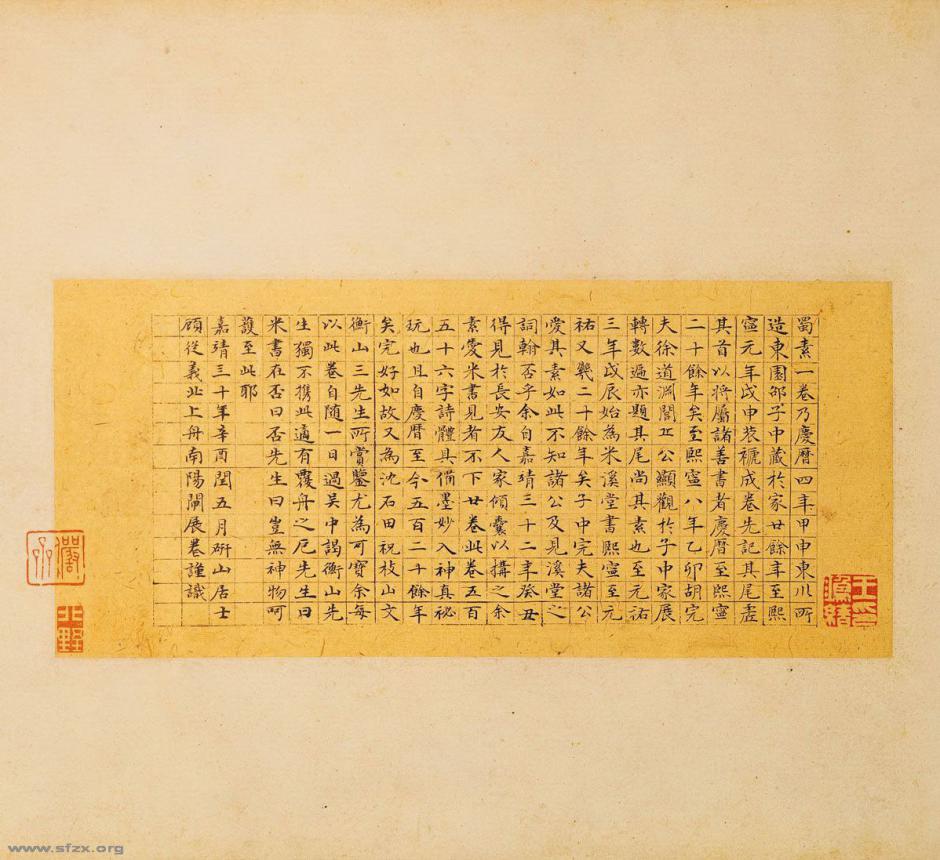 蜀素一卷乃慶曆四年甲申東川所
造東園邵子中藏於家廿餘年至熙
寧元年戊申裝褫成卷先記其尾虛
其首以將屬諸善書者慶曆至熙寧
二十餘年矣至熙寧八年乙卯胡完
夫徐道淵閭丘公顯觀於子中家展
轉數過亦題其尾尚其素也至元祐
三年戊辰始為米溪堂書熙寧至元
祐又幾二十餘年矣子中完夫諸公
愛其素如此不知諸公及見溪堂之
詞翰否乎余自嘉靖三十二年癸丑
得見於長安友人家傾囊以搆之余
素愛米書見者不下廿卷此卷五百
五十六字詩體具備墨妙入神真秘
玩也且自慶曆至今五百二十餘年
矣完好如故又為沈石田祝枝山文
衡山三先生所賞鑒尤為可寶余每
以此卷自随一日過吴中謁衡山先
生獨不携此適有覆舟之厄先生曰
米書在否曰否先生曰豈無神物呵
護至此耶
嘉靖三十年辛酉閏五月研山居士
顧從義北上舟南陽閘展卷謹識
www.sfzx.org